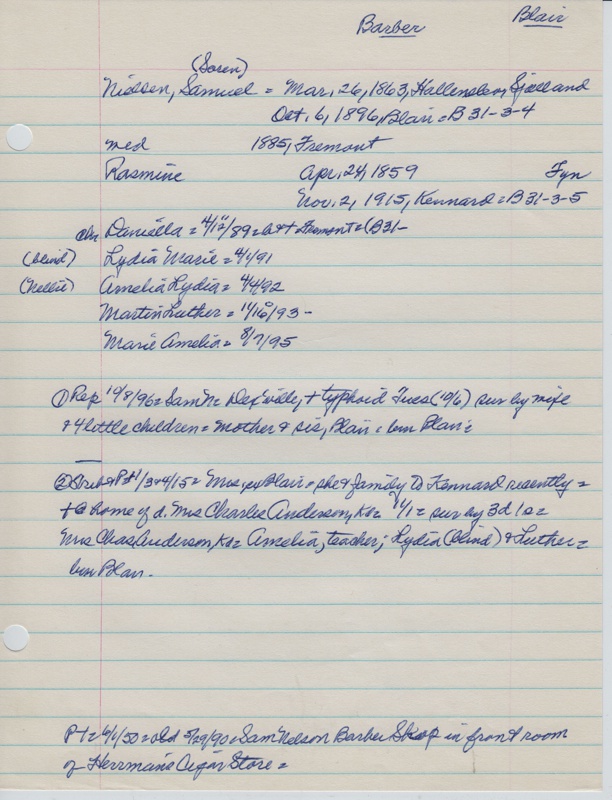 Barber Blair
(Soren)
Nielsen, Samuel = Mar, 26, 1863, Hallenslev, Sjælland
Oct. 6, 1896, Blair = B 31-3-4
med 1885, Fremont
Rasmine Apr. 24, 1859 Fyn
Nov. 2, 1915, Kennard = B 31-3-5
chn Daniella = /89 = b & + Fremont = (B31-
(blind) Lydia Marie = 4/1/91
(Nellie) Amelia Lydia = 4/4/92
Martin Luther = 11/10/93 -
Marie Amelia = 8/7/95
① Rep 10/8/96 = Sam'l N = + typhoid Tues (10/6) sur by wife
& 4 little children = mother & sis, Blair = bur Blair =
② Trib & P 11/3 & 4/15 = Mrs, ex Blair = she & family to Kennard recently =
+ @ home of d. Mrs Charles Anderson, K = 11/1 = sur by 3d 1s =
Mrs Chas Anderson, K = Amelia, teacher; Lydia (blind) & Luther =
bur Blair.
Pt = 6/1/50 = old 5/29/90 = Sam Nelson Barber Shop in front room
of Herrman's Cigar Store =